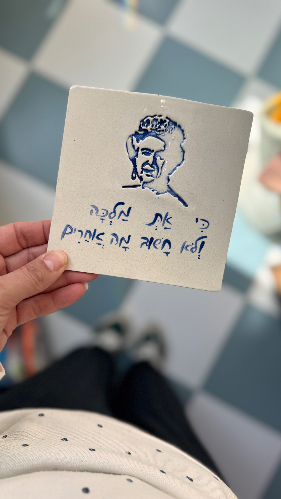 כִּי אַתְּ מַלְכָּה
וְלֹא חָשׁוּב מָה אֲחֵרִים